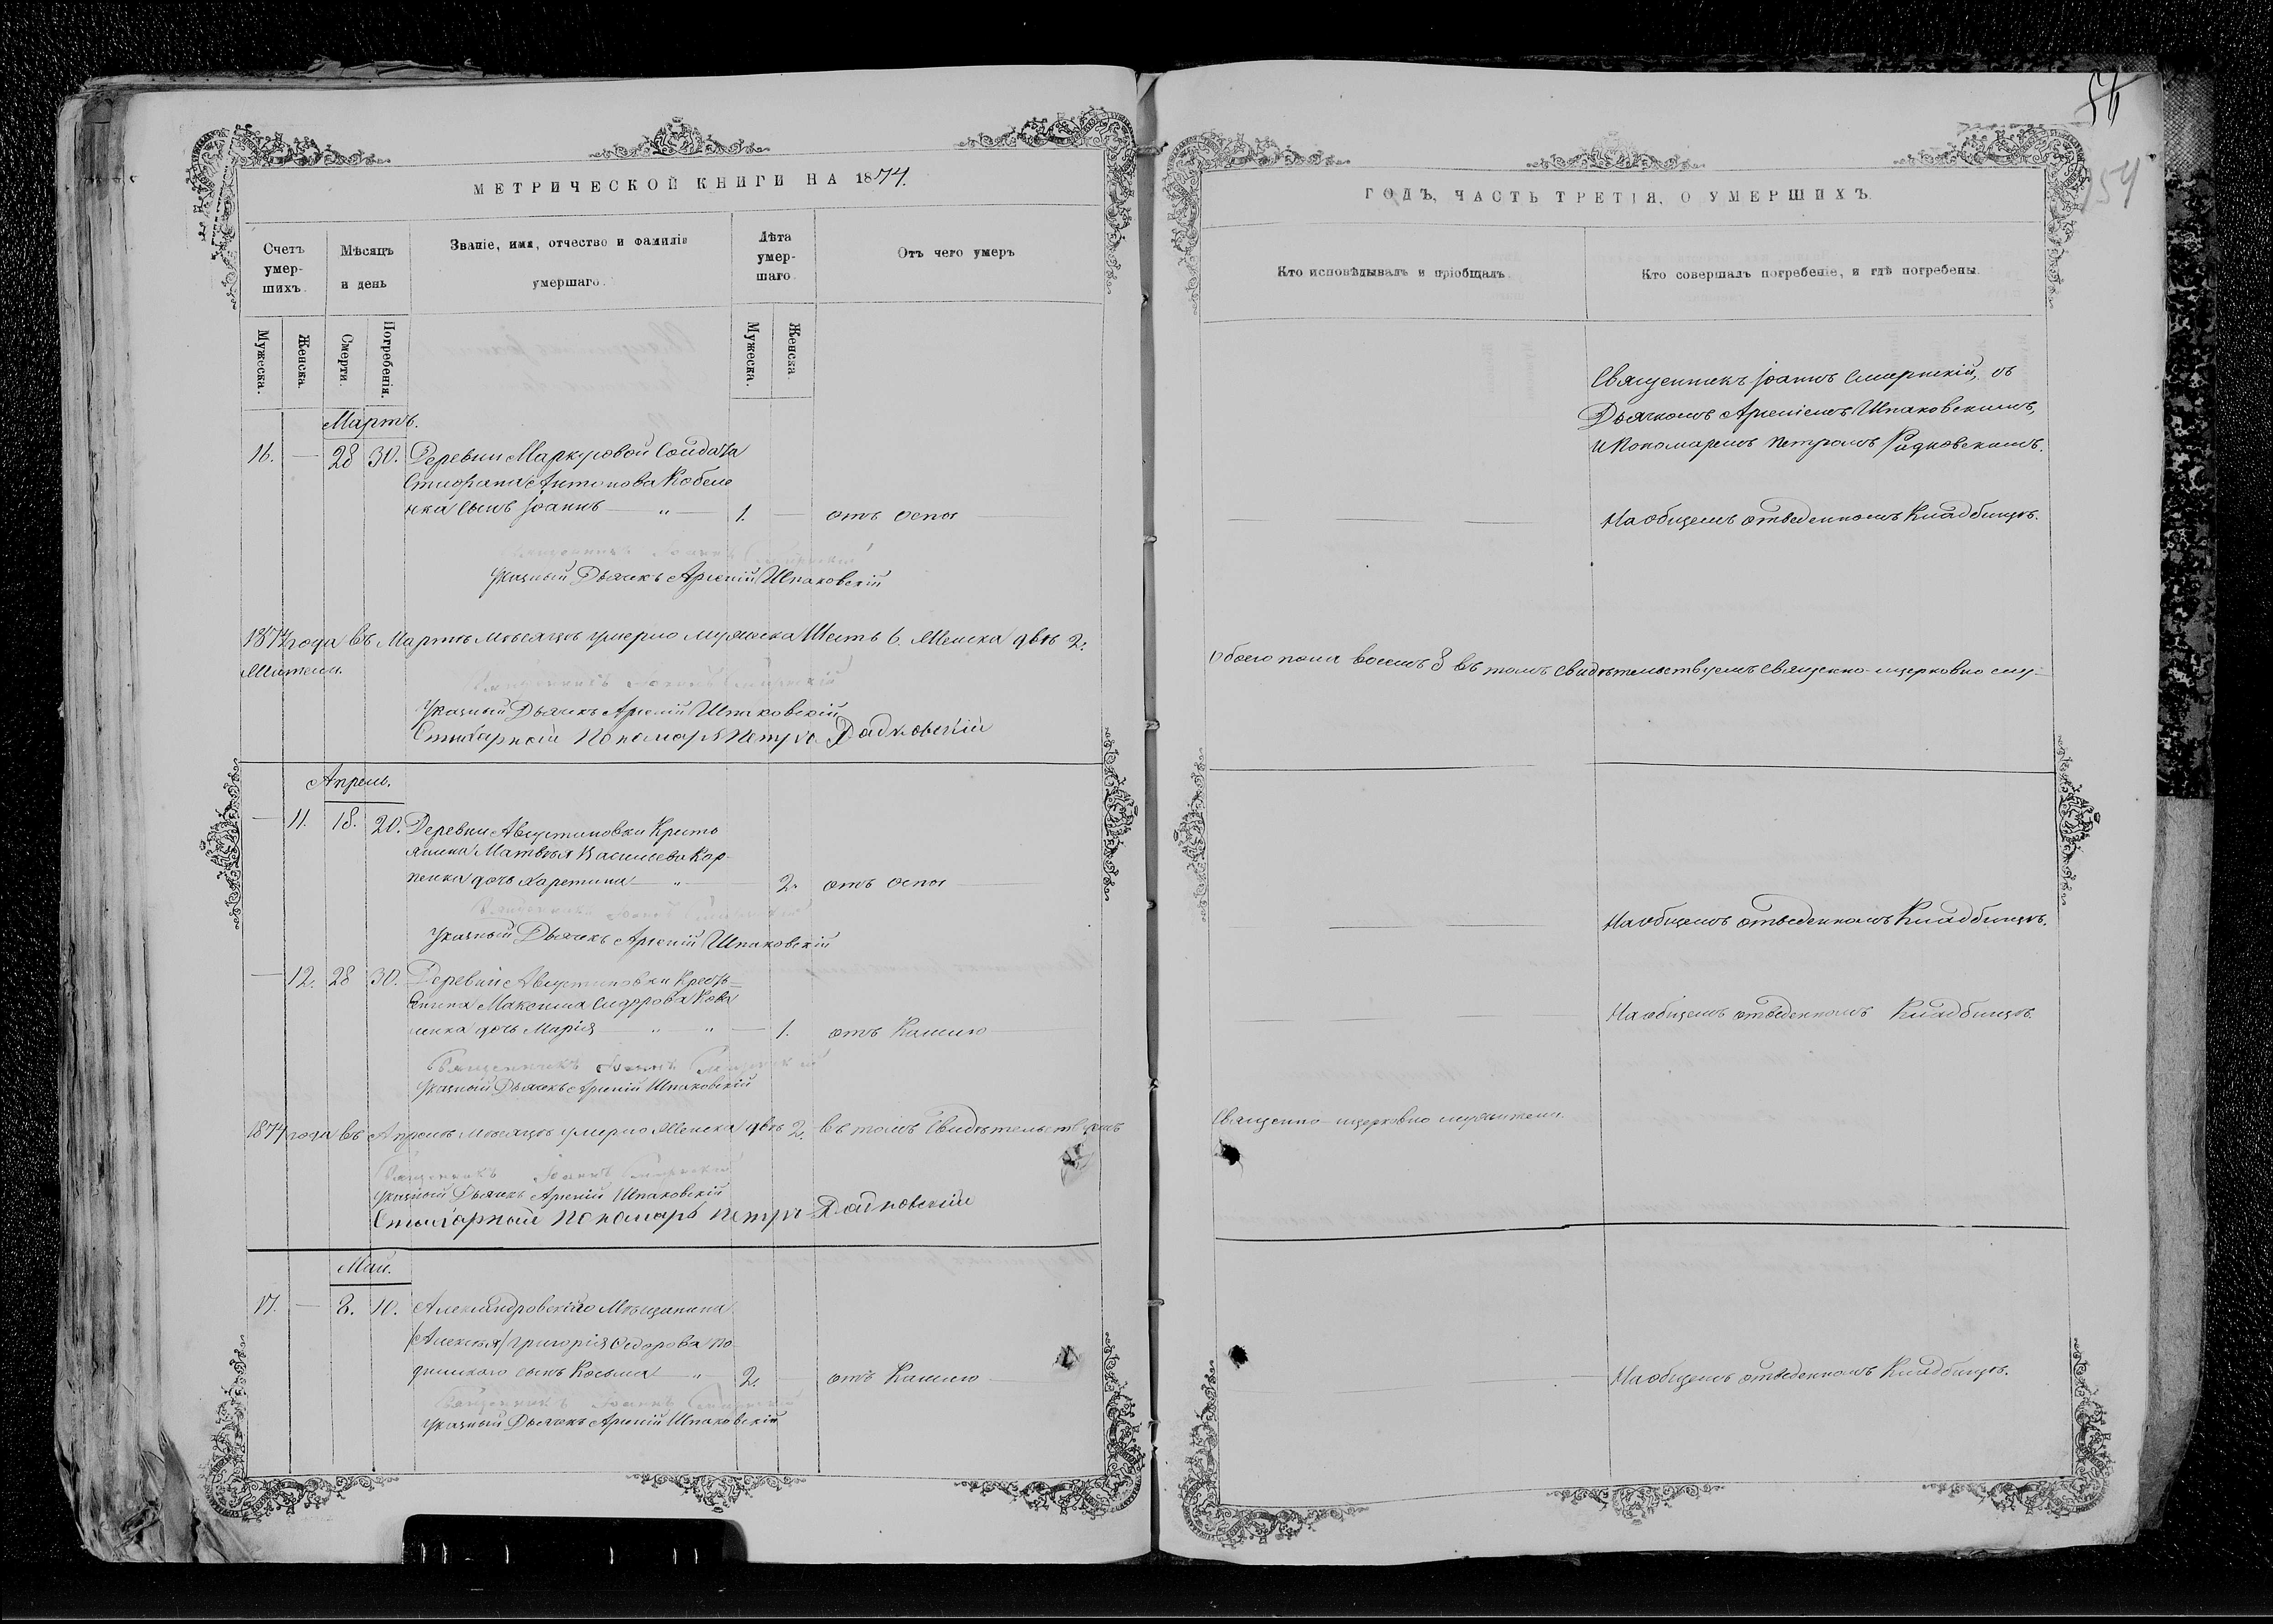 56
154
МЕТРИЧЕСКОЙ КНИГИ НА 1874.
Счетъ умер-шихъ.
Мѣсяцъ и день
Званіе, имя, отчество и фамилія умершаго.
Лѣта умер-шаго.
Отъ чего умеръ
Мужеска.
Женска.
Смерти.
Погребенія.
Мужеска.
Женска.
Мартъ.
16. — 28 30. Деревни Маркусовой Солдата
Антонова Кобеле
нка сынъ Іоаннъ — „ — 1. — отъ оспы
Священникъ Іоаннъ Смирнскій
Указный Дьячекъ Арсеній Шпаковскій
1874 года въ Мартѣ мѣсяцѣ умерло мужеска Шесть 6. Женска двѣ 2.
жители.
Священникъ Іоаннъ Смирнскій
Указный Дьячекъ Арсеній Шпаковскій
Стихарный Пономарь Петръ Радковскій
Апрель.
— 11. 18. 20. Деревни Августиновки Кресть
янина Матвѣя Васильева Кар-
пенка дочь Харитина — „ — 2. отъ оспы
Священникъ Іоаннъ Смирнскій
Указный Дьячекъ Арсеній Шпаковскій
— 12. 28 30. Деревни Августиновки Кресть=
янина Максима Сидорова Кова
ленка дочь Марія — „ „ — 1. отъ Кашлю
Священникъ Іоаннъ Смирнскій
Указный Дьячекъ Арсеній Шпаковскій
1874 года въ Апрелѣ мѣсяцѣ умерло Женска двѣ 2. въ томъ Свидѣтельствуемъ
Священникъ Іоаннъ Смирнскій
Указный Дьячекъ Арсеній Шпаковскій
Стихарный Пономарь Петръ Радковскій
Маи.
17. — 8. 10. Александровскаго Мѣщанина
(Алексѣя) Григорія Федорова По-
сынъ Косьма — „ — 2. отъ Кашлю
Священникъ Іоаннъ Смирнскій
Указный Дьячекъ Арсеній Шпаковскій
ГОДЪ, ЧАСТЬ ТРЕТІЯ, О УМЕРШИХЪ.
Кто исповѣдывалъ и пріобщалъ.
Кто совершалъ погребеніе, и гдѣ погребены.
Священникъ Іоаннъ Смирнскій, съ
Дьячкомъ Арсеніемъ Шпаковскимъ,
и Пономаремъ Петромъ Радковскимъ.
На общемъ отведенномъ Кладбищѣ.
Обоего пола восемъ 8 въ томъ свидѣтельствуемъ Священно-церковно слу=
На общемъ отведенномъ Кладбищѣ.
На общемъ отведенномъ Кладбищѣ.
Священно-церковно служители.
На общемъ отведенномъ Кладбищѣ.